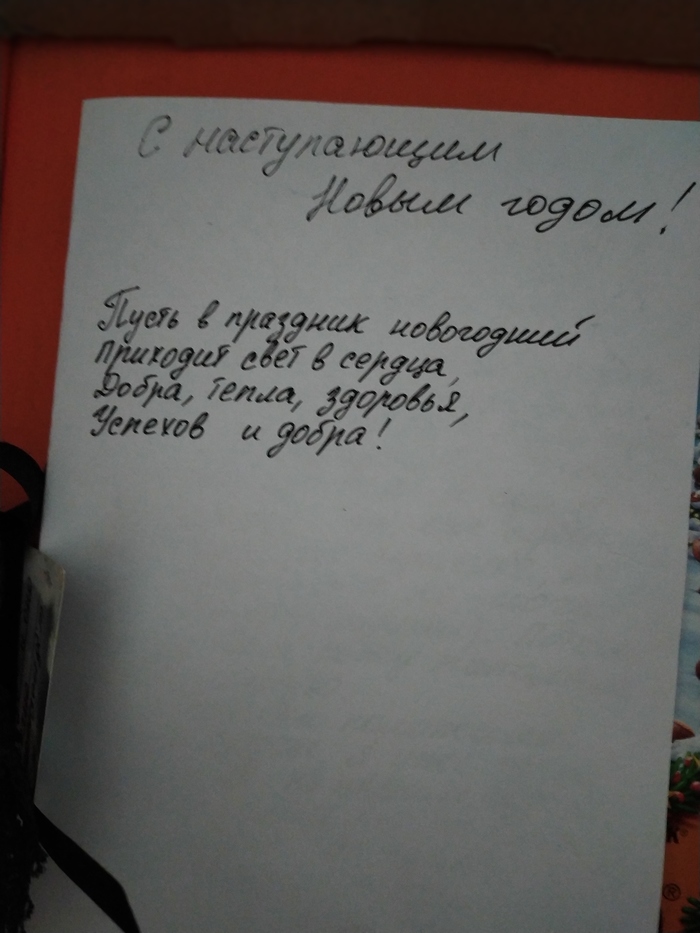 С наступающим
Новым годом!
Пусть в праздник новогодний
приходит свет в сердца,
Добра, тепла, здоровья,
Успехов и добра!
®